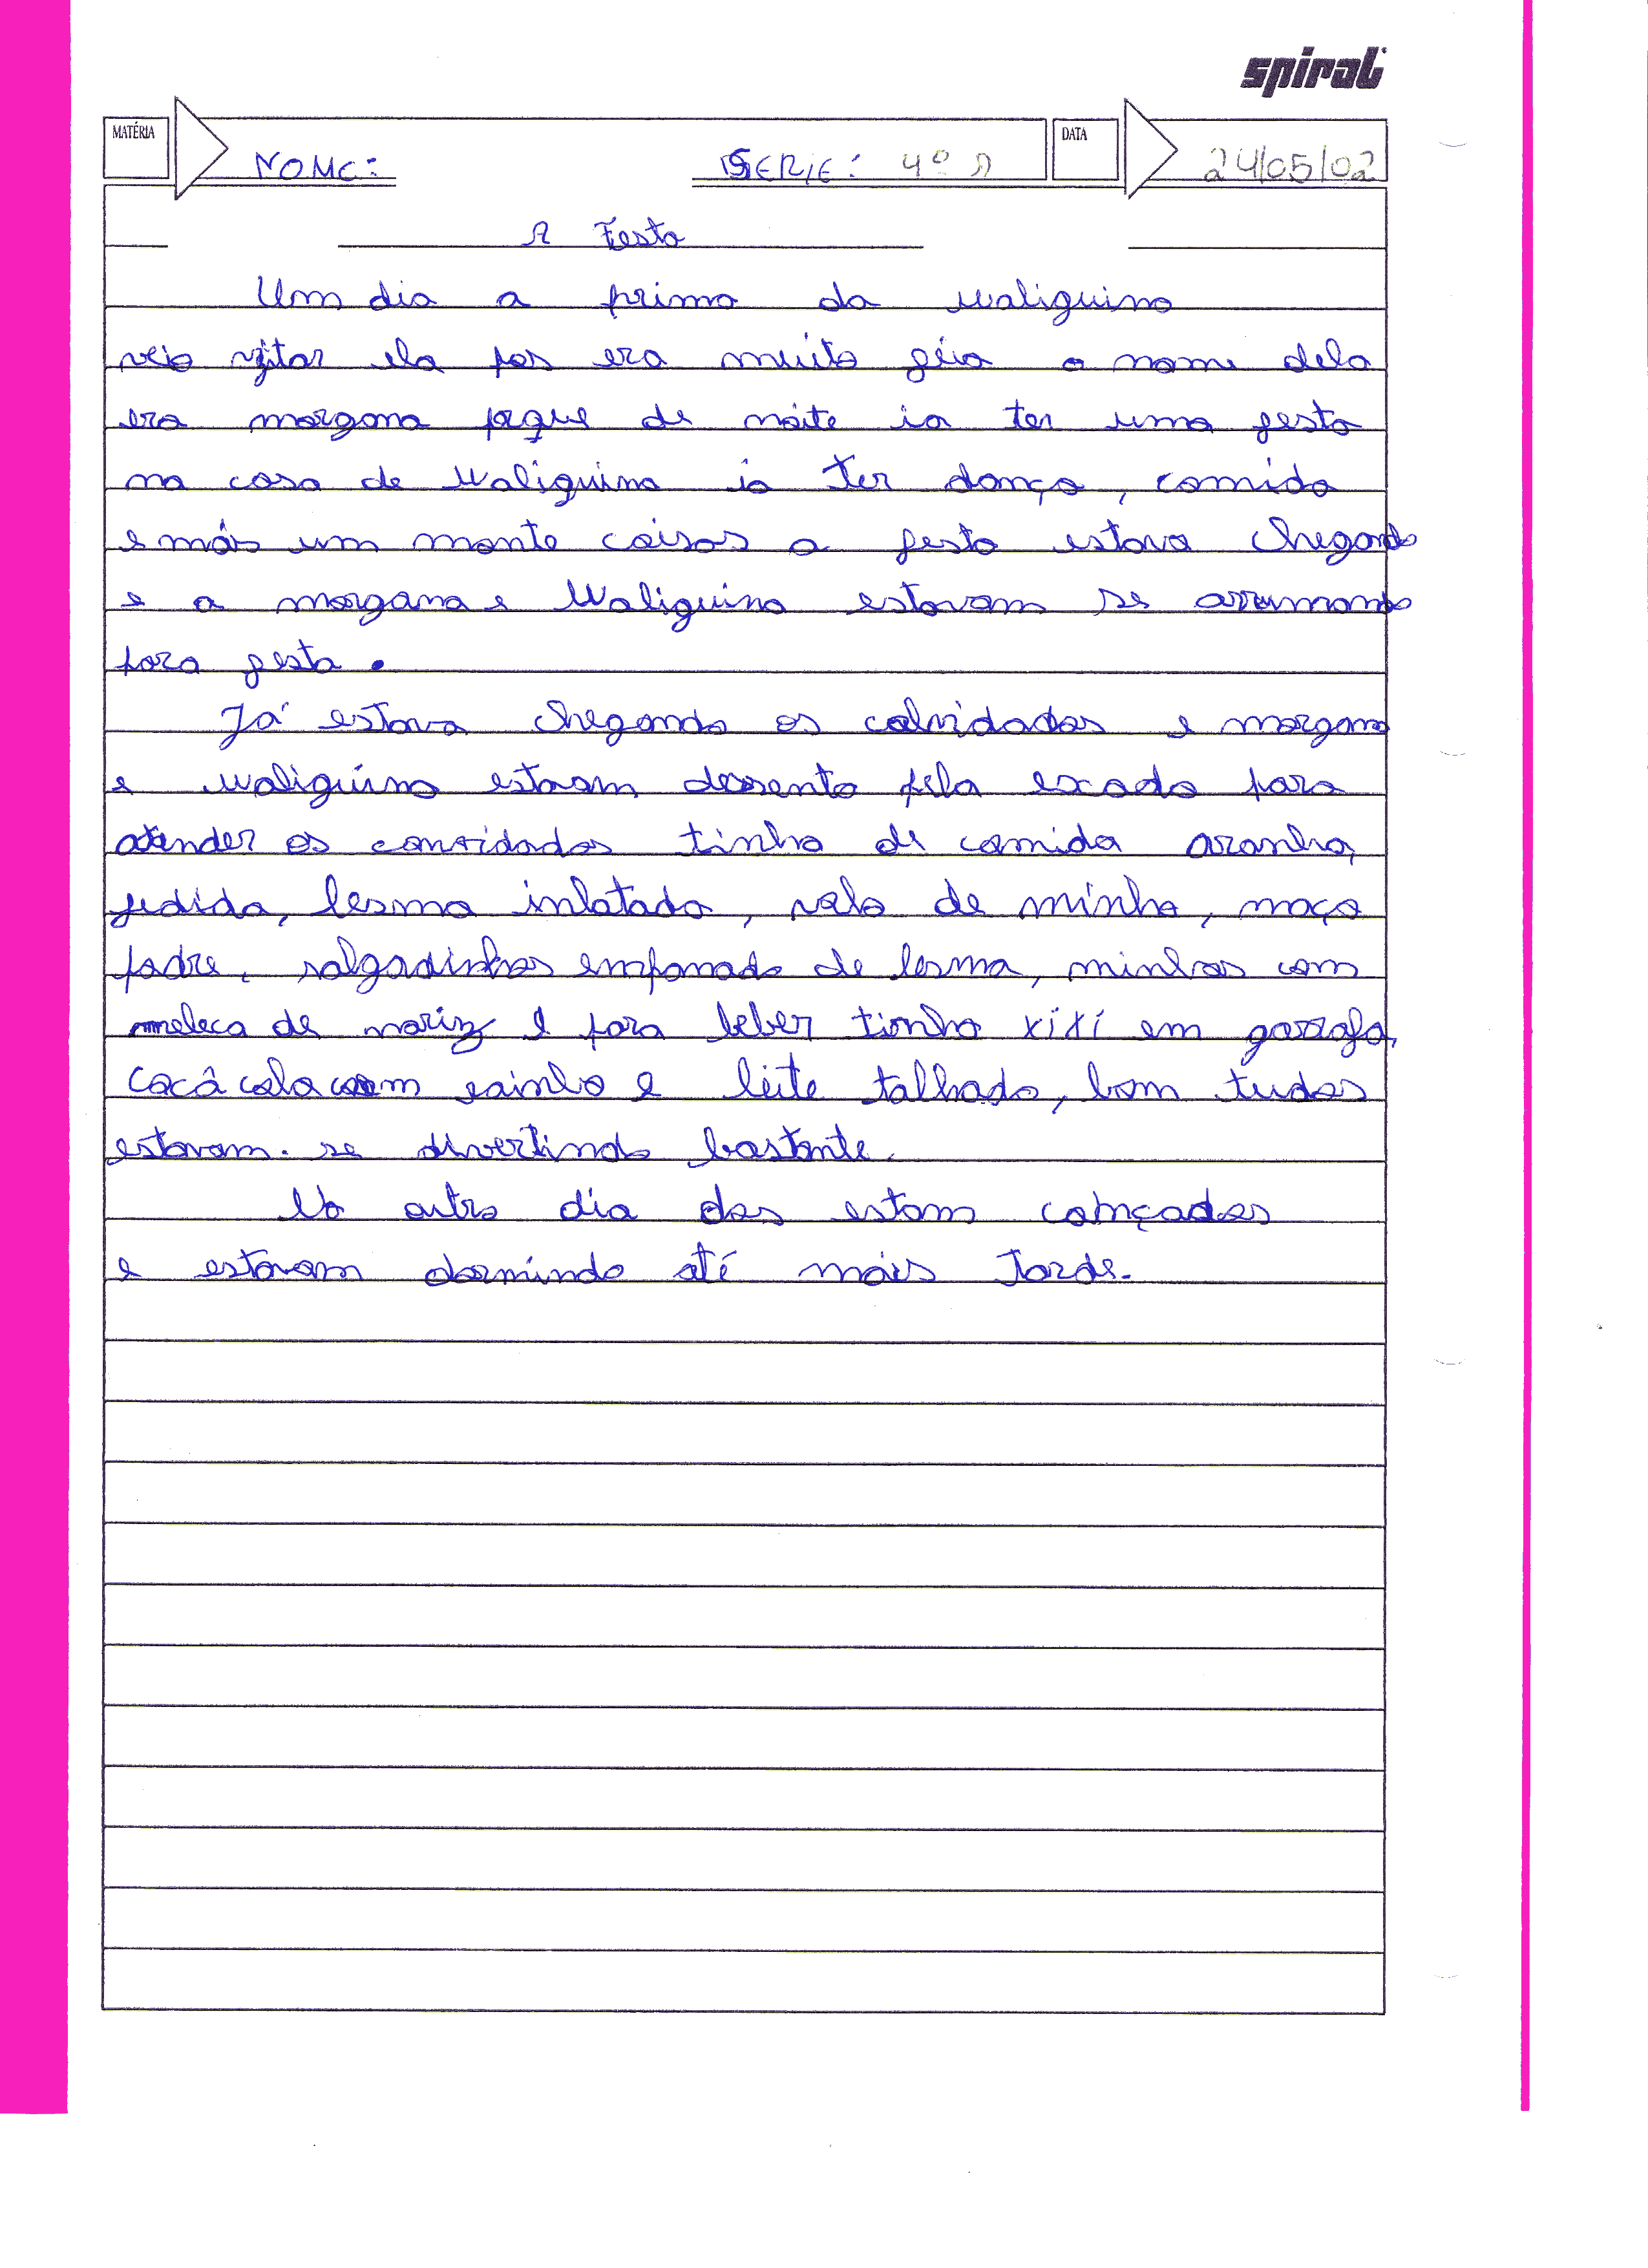 spiral
MATÉRIA NOME: SERIE: 4º A DATA 24/05/02
A Festa
Um dia a prima da Waliguina
veio vzitar ela pos era muito géia o nome dela
era morgana peque de nóite ia ter uma festa
na casa de Waliguina ia Ter dança, comida
e máis um monte coisas a festa estava chegando
e a morgana e Waliguina estavam se arrumando
para festa.
Já estava chegando os calvidados e morgana
e waliguina estavam desento pela escada para
atender os convidados tinha de comida aranha,
fedida, lesma inlatada, ralo de minha, maça
padre, salgadinhos emponado de lesma, minhas com
meleca de nariz e para beber tinha xíxí em garrafa,
cocâ cola com rainho e leite talhado, bom tudos
estavam. se divertindo bastante.
No outro dia elas estam cançadas
e estavam dormindo até mais Tarde.